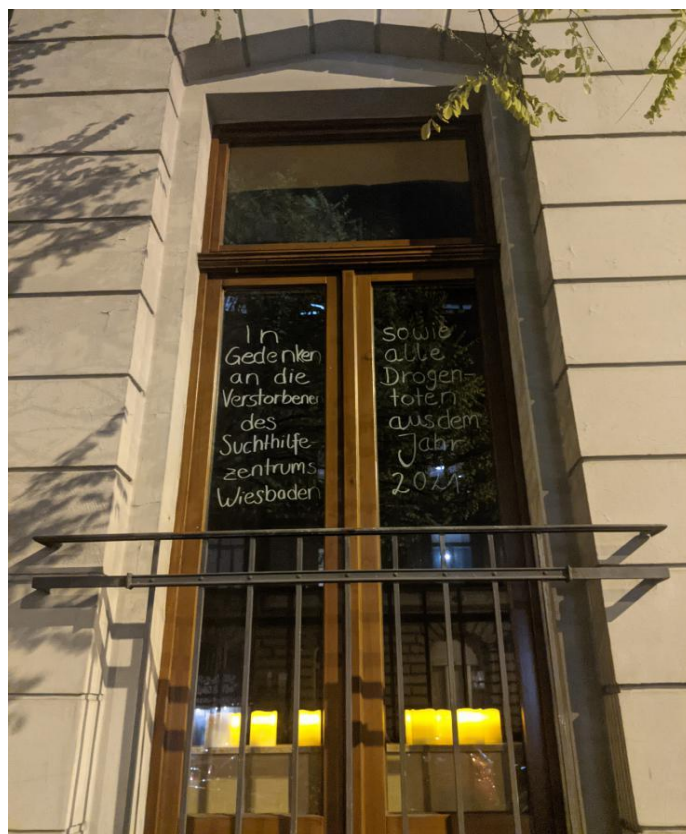 In
Gedenken
an die
Verstorbenen
des
Suchthilfe-
zentrums
Wiesbaden
sowie
alle
Drogen-
toten
aus dem
Jahr
2021.